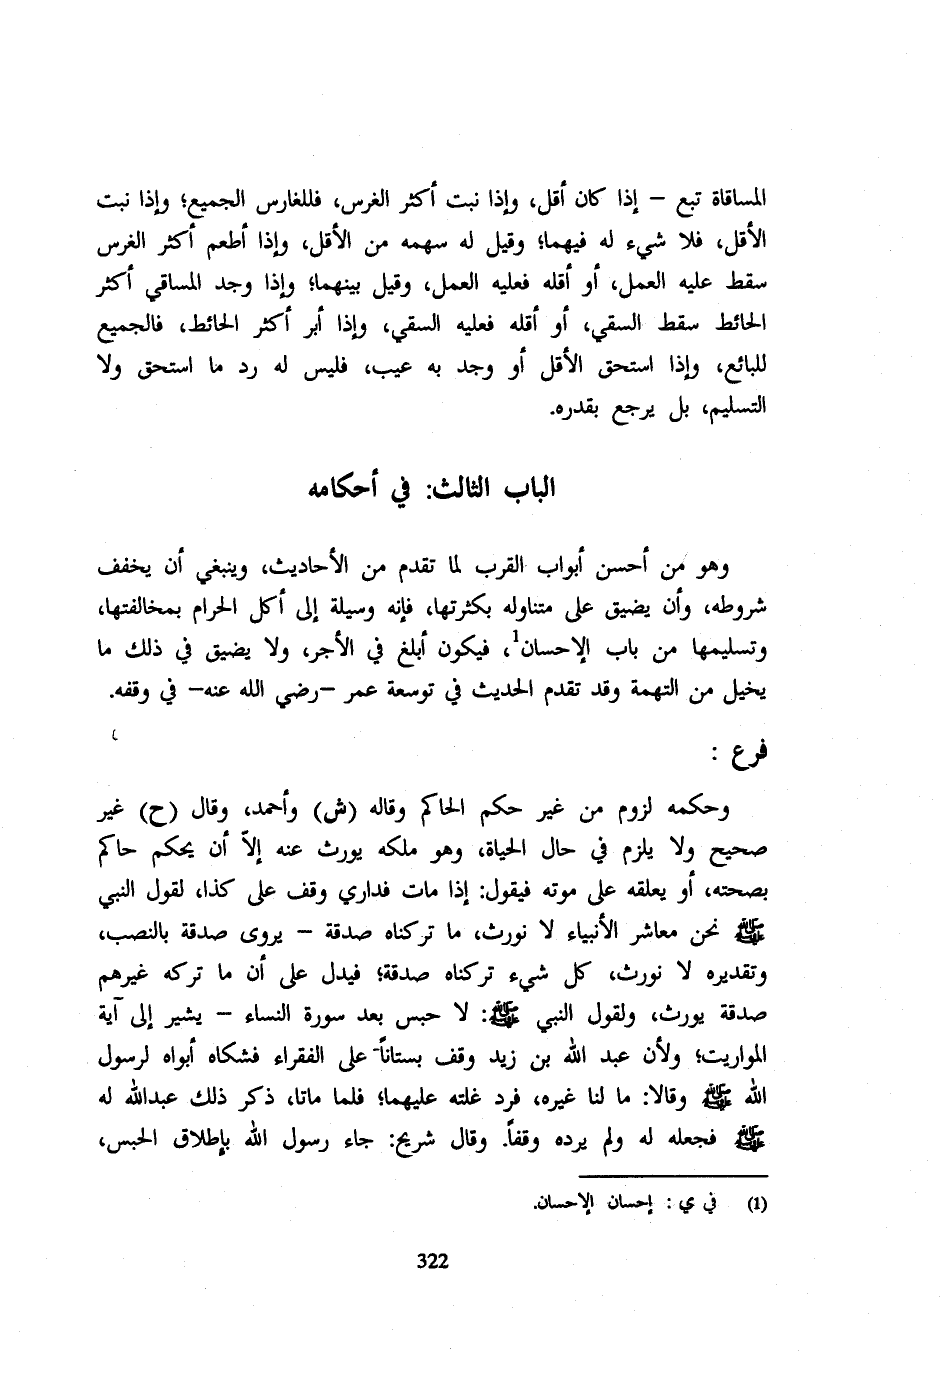 المساقاة تبع – إذا كان أقل، وإذا نبت أكثر الغرس، فللغارس الجميع؛ وإذا نبت
الأقل، فلا شيء له فيهما؛ وقيل له سهمه من الأقل، وإذا أطعم أكثر الغرس
سقط عليه العمل، أو أقله فعليه العمل، وقيل بينهما؛ وإذا وجد المساقي أكثر
الحائط سقط السقي، أو أقله فعليه السقي، وإذا أبر أكثر الحائط، فالجميع
للبائع، وإذا استحق الأقل أو وجد به عيب، فليس له رد ما استحق ولا
التسليم، بل يرجع بقدره.
الباب الثالث: في أحكامه
وهو من أحسن أبواب القرب لما تقدم من الأحاديث، وينبغي أن يخفف
شروطه، وأن يضيق على متناوله بكثرتها، فإنه وسيلة إلى أكل الحرام بمخالفتها،
وتسليمها من باب الإحسان1، فيكون أبلغ في الأجر، ولا يضيق في ذلك ما
يخيل من التهمة وقد تقدم الحديث في توسعة عمر –رضي الله عنه– في وقفه.
فرع :
وحكمه لزوم من غير حكم الحاكم وقاله (ش) وأحمد، وقال (ح) غير
صحيح ولا يلزم في حال الحياة، وهو ملكه يورث عنه إلاّ أن يحكم حاكم
بصحته، أو يعلقه على موته فيقول: إذا مات فداري وقف على كذا، لقول النبي
ﷺ نحن معاشر الأنبياء لا نورث، ما تركناه صدقة – يروى صدقة بالنصب،
وتقديره لا نورث، كل شيء تركناه صدقة؛ فيدل على أن ما تركه غيرهم
صدقة يورث، ولقول النبي ﷺ: لا حبس بعد سورة النساء – يشير إلى آية
المواريت؛ ولأن عبد الله بن زيد وقف بستاناً على الفقراء فشكاه أبواه لرسول
الله ﷺ وقالا: ما لنا غيره، فرد غلته عليهما؛ فلما ماتا، ذكر ذلك عبدالله له
ﷺ فجعله له ولم يرده وقفاً. وقال شريح: جاء رسول الله بإطلاق الحبس،
(1) في ي : إحسان الإحسان.
322